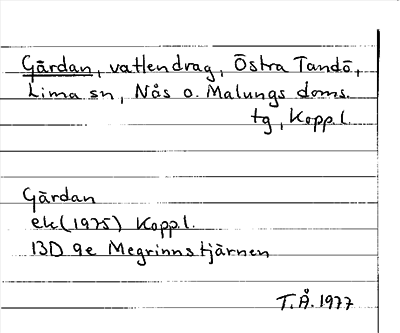 Gärdan, vattendrag, Östra Tandö,
Lima sn, Nås o. Malungs doms.
tg, Kopp.l.
Gärdan
ek (1975) Kopp.l.
13D 9e Megrinnstjärnen
T.Å. 1977